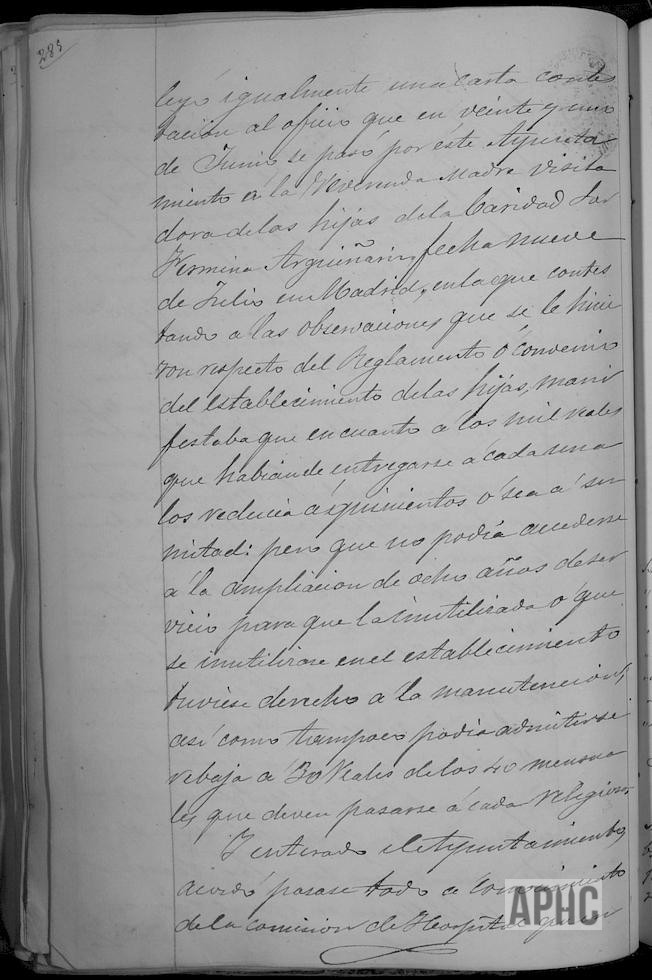 285
leyó igualmente una carta contes
tación al oficio que en veinte y uno
de Junio se pasó por este Ayunta
miento á la Reverenda Madre Visita
dora de las hijas de la Caridad Sor
Fermina Arguiñarin, fecha nueve
de Julio en Madrid, en la que contes
tando a las observaciones que se le hicie
ron respecto del Reglamento ó convenio
del establecimiento de las hijas, mani
festaba que en cuanto á los mil reales
que habian de entregarse á cada una
los reducia á quinientos ó sea á su
mitad: pero que no podia accederse
á la ampliacion de ocho años de ser
vicio para que la inutilizada ó que
se inutilizase en el establecimiento
tuviese derecho a la manutencion,
asi como tampoco podia admitirse
rebaja á 30 reales de los 40 mensua
les que deven pasarse á cada Religiosa.
I enterado el Ayuntamiento,
acordó pasase todo a conocimiento
de la comision de Hospital
APHC